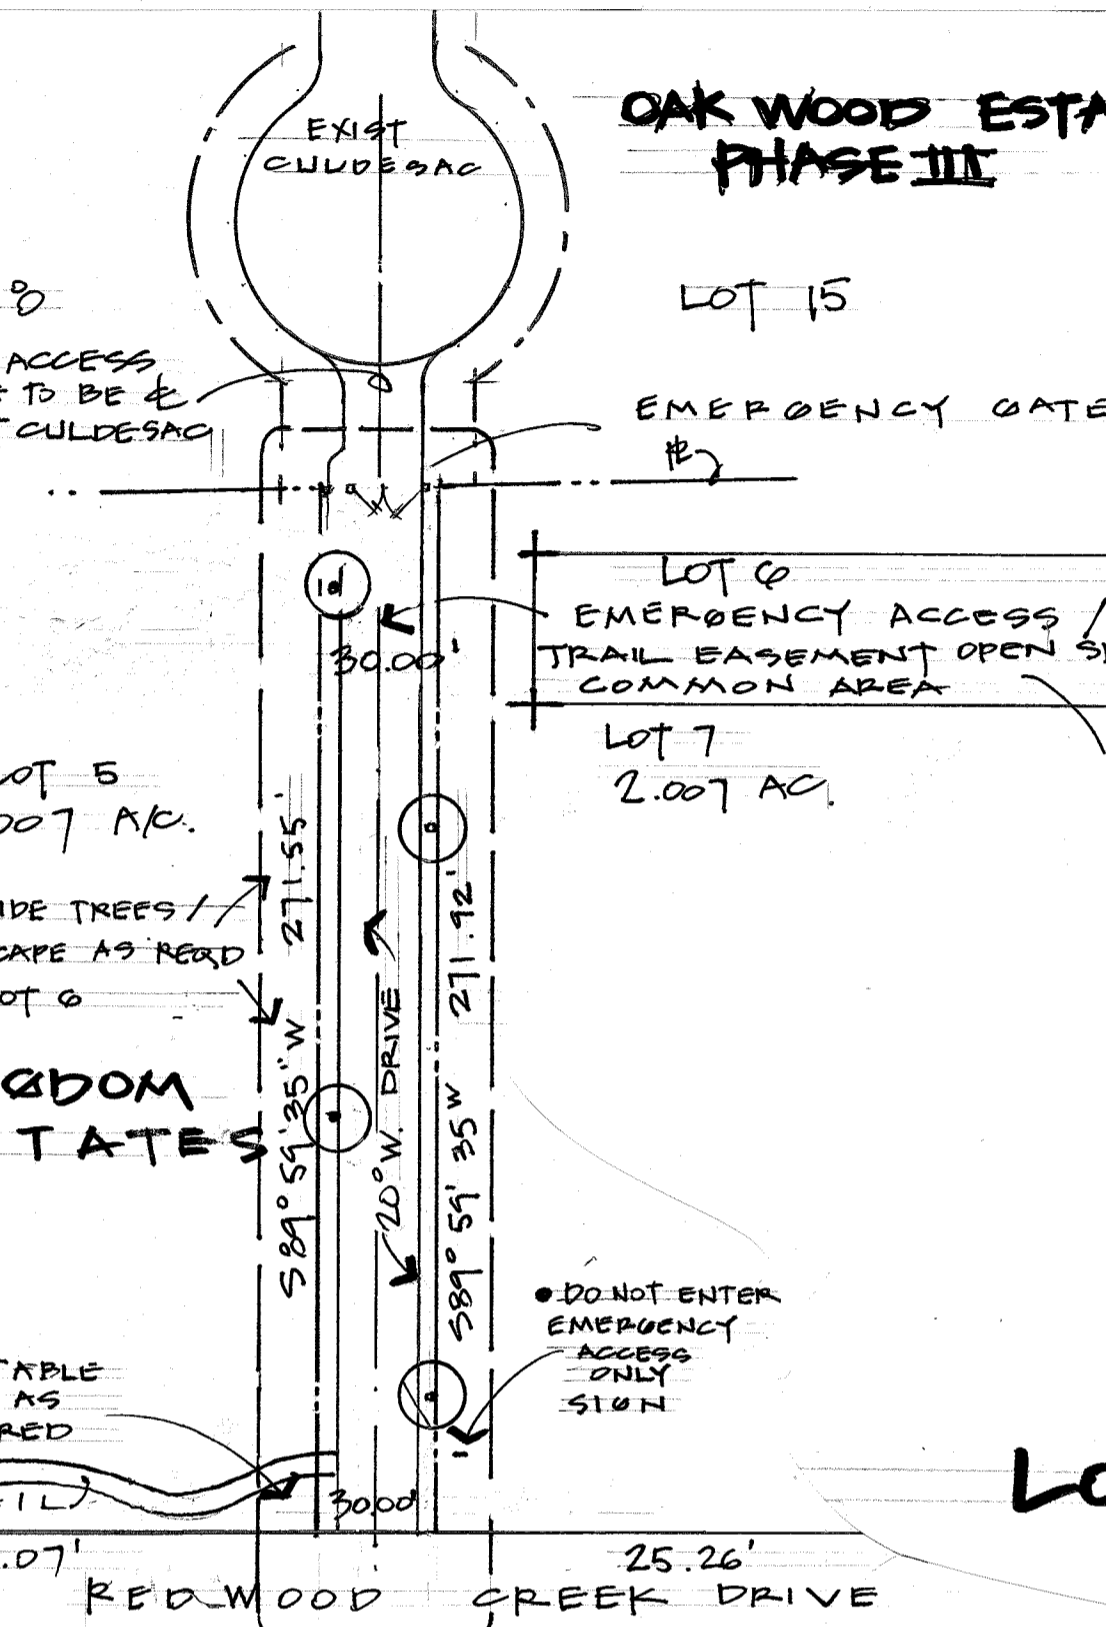 EXIST
CULDESAC
OAK WOOD ESTA
PHASE III
LOT 15
8
ACCESS
TO BE ℄
CULDESAC
EMERGENCY GATE
℄
LOT 6
EMERGENCY ACCESS /
TRAIL EASEMENT OPEN SP
COMMON AREA
30.00'
LOT 7
2.007 AC.
OT 5
007 A/C.
271.55'
271.92'
IDE TREES /
CAPE AS REQD
OT 6
20° W. DRIVE
S89° 59' 35" W
S89° 59' 35 W
GDOM
TATES
• DO NOT ENTER
EMERGENCY
ACCESS
ONLY
SIGN
TABLE
AS
RED
IL
30.00'
LO
.07'
25.26'
REDWOOD CREEK DRIVE